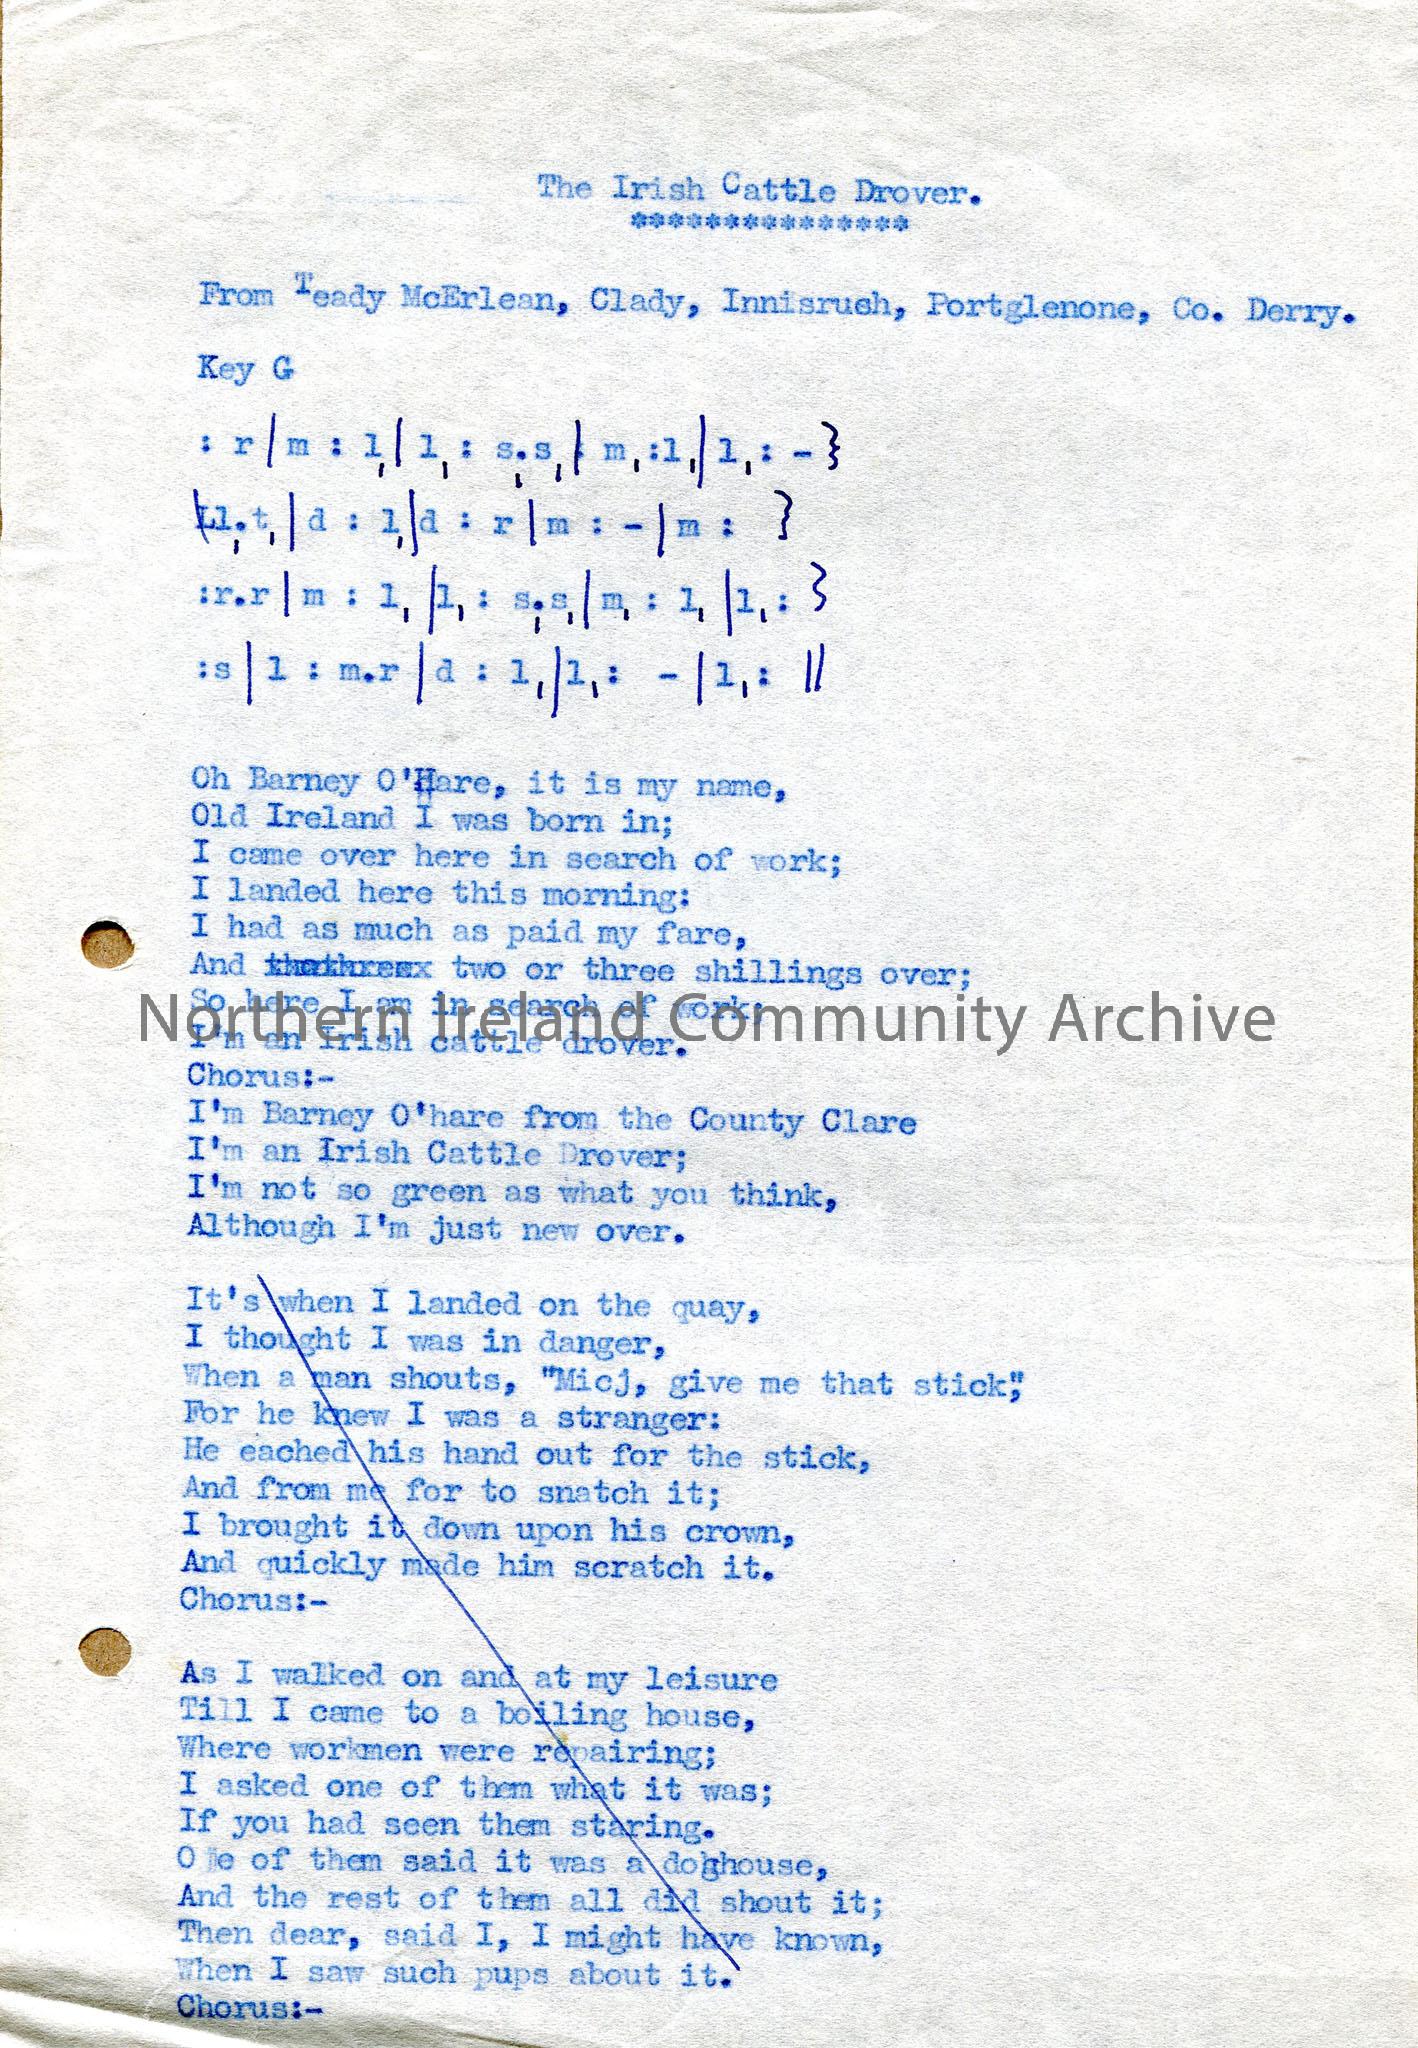 The Irish Cattle Drover.
***************
From Teady McErlean, Clady, Innisrush, Portglenone, Co. Derry.
Key G
: r | m : l, | l, : s,.s, | m, :l, | l, : - }
l,.t, | d : l, | d : r | m : - | m : }
:r.r | m : l, | l, : s,.s, | m, : l, | l, : }
:s | l : m.r | d : l, | l, : - | l, : ||
Oh Barney O'Hare, it is my name,
Old Ireland I was born in;
I came over here in search of work;
I landed here this morning:
I had as much as paid my fare,
And two or three shillings over;
So here I am in search of work;
I'm an Irish cattle drover.
Northern Ireland Community Archive
Chorus:-
I'm Barney O'hare from the County Clare
I'm an Irish Cattle Drover;
I'm not so green as what you think,
Although I'm just new over.
It's when I landed on the quay,
I thought I was in danger,
When a man shouts, "Micj, give me that stick",
For he knew I was a stranger:
He eached his hand out for the stick,
And from me for to snatch it;
I brought it down upon his crown,
And quickly made him scratch it.
Chorus:-
As I walked on and at my leisure
Till I came to a boiling house,
Where workmen were repairing;
I asked one of them what it was;
If you had seen them staring.
One of them said it was a doghouse,
And the rest of them all did shout it;
Then dear, said I, I might have known,
When I saw such pups about it.
Chorus:-